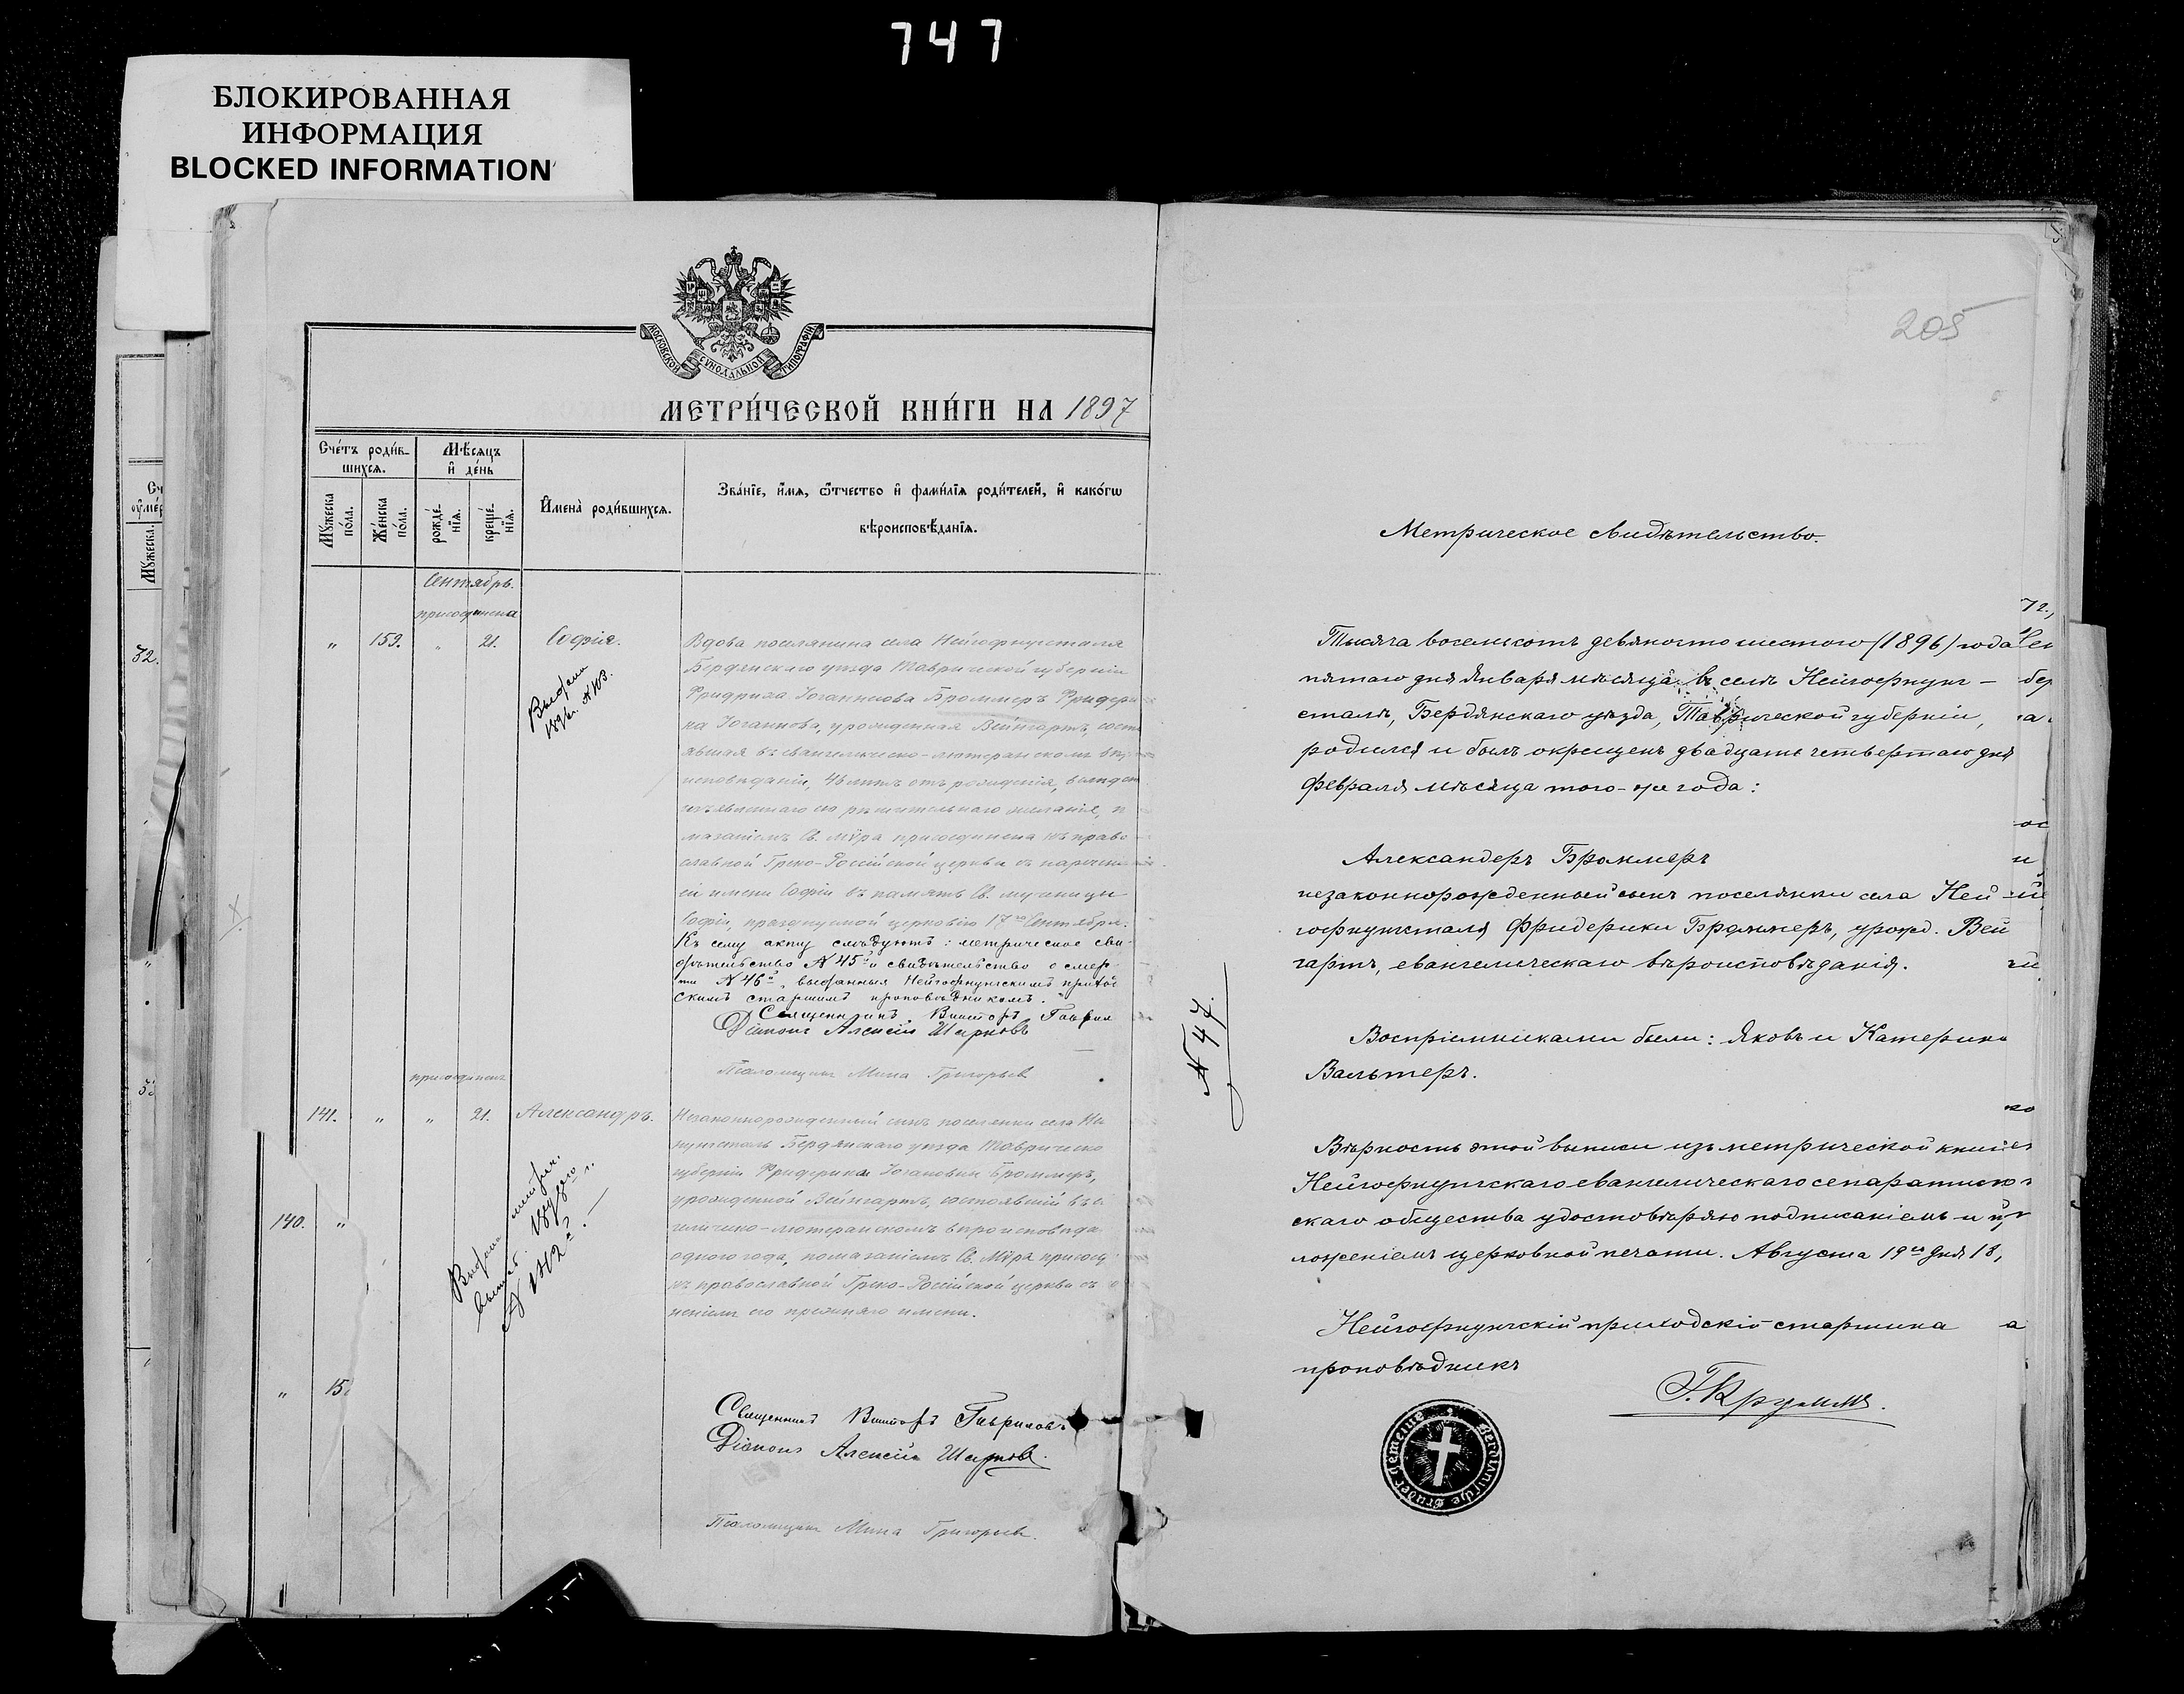 747
БЛОКИРОВАННАЯ
ИНФОРМАЦИЯ
BLOCKED INFORMATION
МОСКОВСКОЙ СѴНОДАЛЬНОЙ ТИПОГРАФІИ
МЕТРИ́ЧЕСКОЙ КНИ́ГИ НА 1897
Сче́тъ роди́в-
шихся.
Мѣ́сяцъ
и҆ де́нь
И҆мена̀ роди́вшихся.
Зва́нїе, и҆́мя, ѻ҆́тчество и҆ фами́лїя роди́телей, и҆ како́гѡ
вѣроисповѣ́данїя.
Мꙋ́жеска
по́ла.
Же́нска
по́ла.
рожде́-
нїя.
креще́-
нїя.
Сентябрь.
присоединена
" 159. " 21. Софія.
Выдана
Вдова поселянина села Нейгофнунгсталя
Бердянскаго уѣзда Таврической губерніи
Фридриха Іоганнова Броммеръ Фридери
ка Іоганнова, урожденная Вейнгартъ, состо
явшая въ евангелическо-лютеранскомъ вѣро
исповѣданіи, 46 лѣтъ отъ рожденія, вслѣдст
изъявленнаго ею рѣшительнаго желанія, п
мазаніемъ Св. мѵра присоединена къ право
славной Греко-Россійской церкви съ наречені
ей имени Софіи въ память Св. мученицы
Софіи, празднуемой церковію 17го Сентября.
Къ сему акту слѣдуютъ: метрическое сви-
дѣтельство N 45й и свидѣтельство о смер-
ти N 46й, выданныя Нейгофнунгскимъ приход
скимъ старшимъ проповѣдникомъ.
Священникъ Викторъ Гаврил
Діаконъ Алексій Шарковъ
Псаломщикъ Мина Григорьев
присоединенъ
141. " " 21. Александръ.
Незаконнорожденный сынъ поселянки села Не
нунгсталь Бердянскаго уѣзда Таврическо
губерніи Фридерики Іогановны Броммеръ,
урожденной Вейнгартъ, состоявшій въ е
гелическо-лютеранскомъ вѣроисповѣда
одного года, помазаніемъ Св. Мѵра присоед
къ православной Греко-Россійской церкви съ
неніемъ его прежняго имени.
Выдана метрич.
N 1812
140. "
" 15
Священникъ Викторъ Гавриловъ
Діаконъ Алексій Шарковъ.
Псаломщикъ Мина Григорьев.
N 47.
205
Метрическое свидѣтельство.
Тысяча восемьсотъ девяносто шестого (1896) года
пятаго дня Января мѣсяца въ селѣ Нейгофнунг-
сталѣ, Бердянскаго уѣзда, Таврической губерніи,
родился и былъ окрещенъ двадцать четвертаго дня
Февраля мѣсяца того-же года:
Александеръ Броммеръ
незаконнорожденный сынъ поселянки села Ней
гофнунгсталя Фридерики Броммеръ, урожд. Вей
гартъ, евангелическаго вѣроисповѣданія.
Воспріемниками были: Яковъ и Катерина
Вальтеръ.
Вѣрность этой выписи изъ метрической книги
Нейгофнунгскаго евангелическаго сепаратист
скаго общества удостовѣряю подписаніемъ и при
ложеніемъ церковной печати. Августа 19го дня 18
Нейгофнунгскій приходскій старшина
проповѣдникъ
Г. Круммъ.
Berdianische Brüder Gemeine